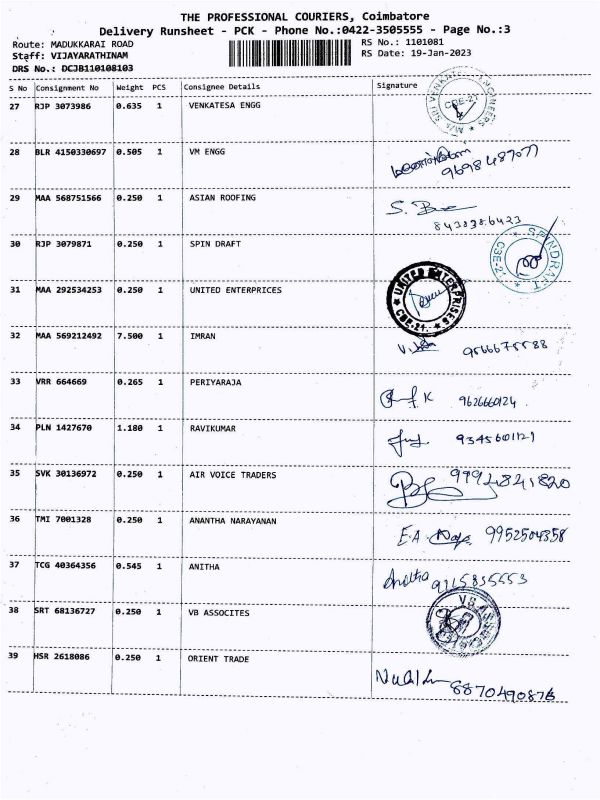 THE PROFESSIONAL COURIERS, Coimbatore
Delivery Runsheet - PCK - Phone No.:0422-3505555 - Page No.:3
Route: MADUKKARAI ROAD
RS No.: 1101081
Staff: VIJAYARATHINAM
RS Date: 19-Jan-2023
DRS No.: DCJB110108103
S No Consignment No Weight PCS Consignee Details Signature
27 RJP 3073986 0.635 1 VENKATESA ENGG
CBE-21
28 BLR 4150330697 0.505 1 VM ENGG
9698487077
29 MAA 568751566 0.250 1 ASIAN ROOFING
8438386423
30 RJP 3079871 0.250 1 SPIN DRAFT
SPINDRAFT CBE-21
31 MAA 292534253 0.250 1 UNITED ENTERPRICES
UNITED ENTERPRISES CBE-21.
32 MAA 569212492 7.500 1 IMRAN
9566675588
33 VRR 664669 0.265 1 PERIYARAJA
9626660124
34 PLN 1427670 1.180 1 RAVIKUMAR
9345601121
35 SVK 30136972 0.250 1 AIR VOICE TRADERS
36 TMI 7001328 0.250 1 ANANTHA NARAYANAN
E.A 9952504358
37 TCG 40364356 0.545 1 ANITHA
Anitha
38 SRT 68136727 0.250 1 VB ASSOCITES
39 HSR 2618086 0.250 1 ORIENT TRADE